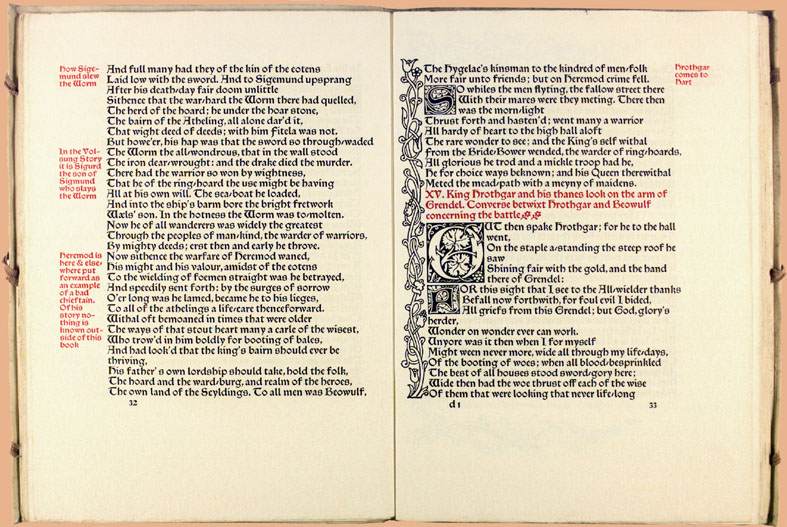 How Sige-
mund slew
the Worm
And full many had they of the kin of the eotens
Laid low with the sword. And to Sigemund upsprang
After his death-day fair doom unlittle
Sithence that the war-hard the Worm there had quelled,
The herd of the hoard; he under the hoar stone,
The bairn of the Atheling, all alone dar'd it,
That wight deed of deeds; with him Fitela was not.
But howe'er, his hap was that the sword so through-waded
In the Vol-
sung Story
it is Sigurd
the son of
Sigmund
who slays
the Worm
The Worm the all-wondrous, that in the wall stood
The iron dear-wrought: and the drake died the murder.
There had the warrior so won by wightness,
That he of the ring-hoard the use might be having
All at his own will. The sea-boat he loaded,
And into the ship's barm bore the bright fretwork
Wæls' son. In the hotness the Worm was to-molten.
Now he of all wanderers was widely the greatest
Through the peoples of man-kind, the warder of warriors,
By mighty deeds; erst then and early he throve.
Heremod is
here & else-
where put
forward as
an example
of a bad
chieftain.
Of his
story no-
thing is
known out-
side of this
book
Now sithence the warfare of Heremod waned,
His might and his valour, amidst of the eotens
To the wielding of foemen straight was he betrayed,
And speedily sent forth: by the surges of sorrow
O'er long was he lamed, became he to his lieges,
To all of the athelings a life-care thenceforward.
Withal oft bemoaned in times that were older
The ways of that stout heart many a carle of the wisest,
Who trow'd in him boldly for booting of bales,
And had look'd that the king's bairn should ever be
thriving,
His father's own lordship should take, hold the folk,
The hoard and the ward-burg, and realm of the heroes,
The own land of the Scyldings. To all men was Beowulf,
32
The Hygelac's kinsman to the kindred of men-folk
More fair unto friends; but on Heremod crime fell.
Hrothgar
comes to
Hart
SO whiles the men flyting, the fallow street there
With their mares were they meting. There then
was the morn-light
Thrust forth and hasten'd; went many a warrior
All hardy of heart to the high hall aloft
The rare wonder to see; and the King's self withal
From the Bride-Bower wended, the warder of ring-hoards,
All glorious he trod and a mickle troop had he,
He for choice ways beknown; and his Queen therewithal
Meted the mead-path with a meyny of maidens.
XV. King Hrothgar and his thanes look on the arm of
Grendel. Converse betwixt Hrothgar and Beowulf
concerning the battle
OUT then spake Hrothgar; for he to the hall
went,
On the staple a-standing the steep roof he
saw
Shining fair with the gold, and the hand
there of Grendel:
FOR this sight that I see to the All-wielder thanks
Befall now forthwith, for foul evil I bided,
All griefs from this Grendel; but God, glory's
herder,
Wonder on wonder ever can work.
Unyore was it then when I for myself
Might ween never more, wide all through my life-days,
Of the booting of woes; when all blood-besprinkled
The best of all houses stood sword-gory here;
Wide then had the woe thrust off each of the wise
Of them that were looking that never life-long
d1
33